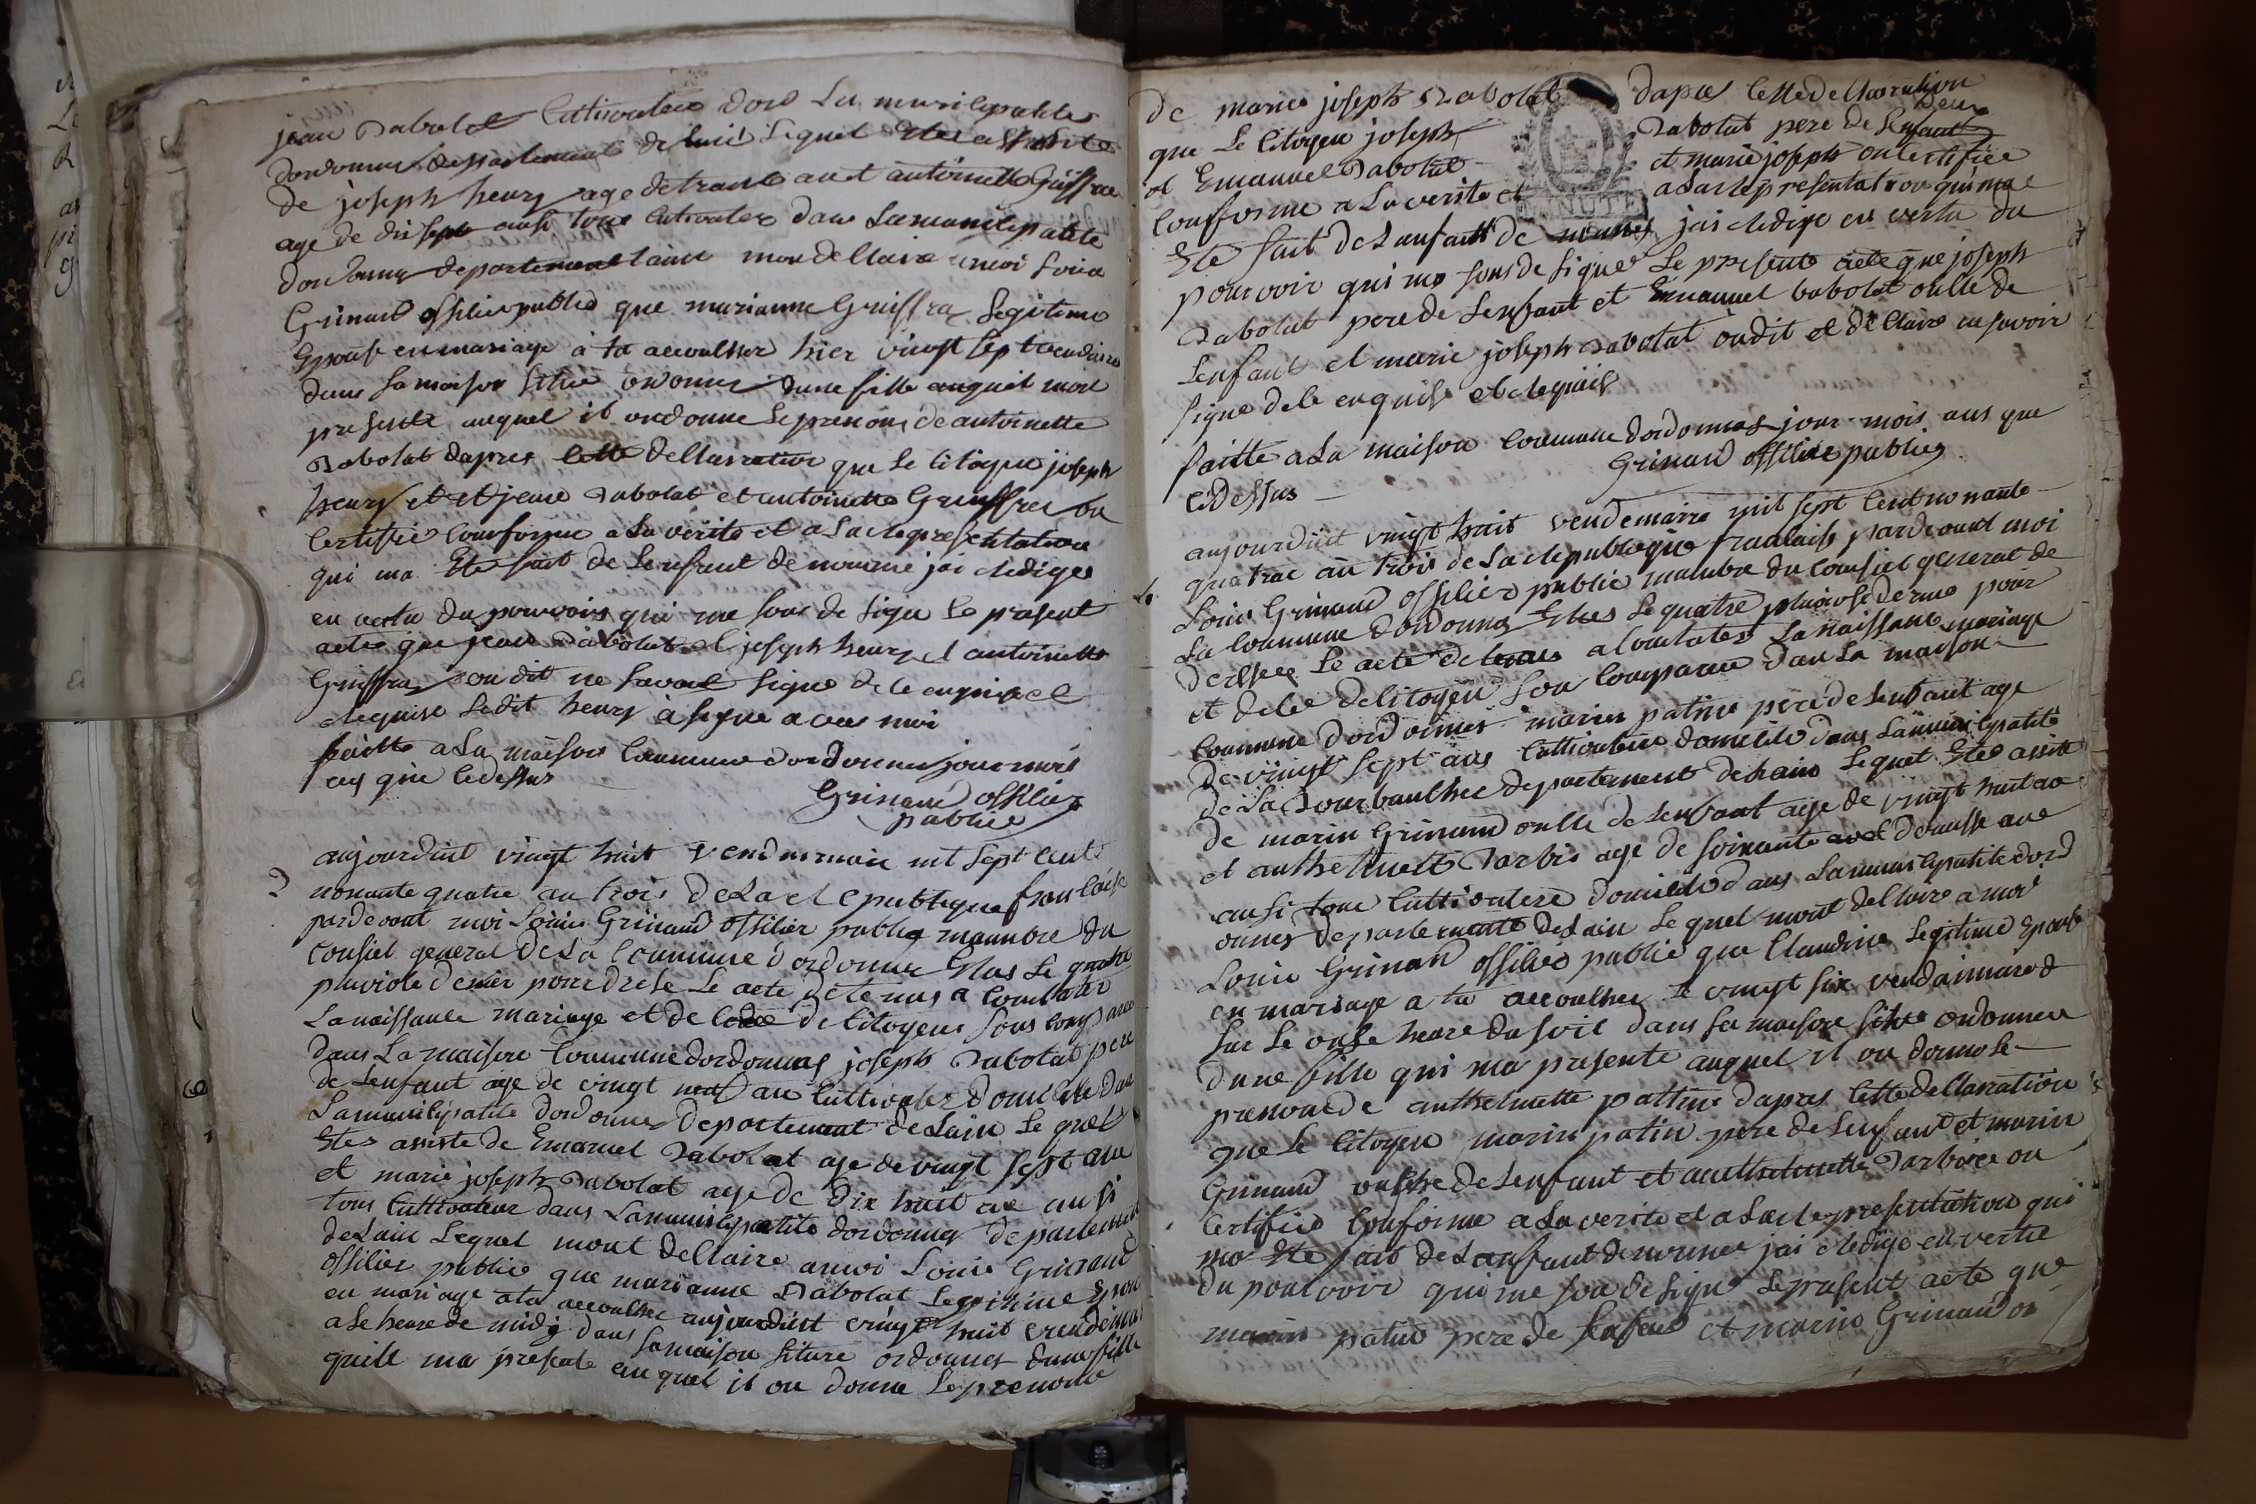 jean Rabolat Cultivateur dord La municipalite
dordonnas departement de lain Lequel Etes assiste
de joseph henry age de trante an et antoinette Griffrae
age de dis sept ausi tous Cultivateer dans La municipalite
dordonnas departement laint mon dellaire a moi Louis
Grinand offilier public que marianne Gruiffraz Legitime
Epouse en mariage à ta accoulhee hier vingt sept vendaire
dans sa maison situe ordonnas dune fille auquel mon
presente auquel il on donne Le prenom de antoinette
Rabolat dapres cette dellarration que le Citoyen joseph
henry et et jean Rabolat et antoinette Gruiffraz on
Certifie Conforme a La verite et a La representation
qui ma Ete fait de Lenfant denommé jai redige
en vertu du pouvoirs qui me sons de signe le present
acte que jean Rabolat et joseph henry et antoinette
Gruiffraz on dit ne savoir signe de le enquise et
requise Ledit henry à signe avec moi
faitte a La maison Commune dordonnas jour mois
ans que cedessus
Grinand offilier
publiee
2
aujourdhuit vingt huit vendemaire mil sept cent
nonante quatre an trois de La republique franlaise
pardevant moi Louis Grinand offilier public mambre du
Consiel general de La Commune dordonnas Elus Le quatre
pluviose denier pour drese Le acte detenus a Constater
La naissance mariage et de cede de Citoyens sous Comparu
dans La maison Commune dordonnas joseph Rabolat pere
de Lenfant age de vingt neuf ans Cultivater domicilie dans
La municipalite dordonnas departement de Lain Le quel
Etes assiste de Emanuel Rabolat age de vingt sept ans
et marie joseph Rabolat age de dix huit an ausi
tous Cultivateur dans La municipalite dordonnas departement
de Lain Lequel mont dellaire a moi Louis Grinand
offilier public que marianne Rabolat Legitime Epous
en mariage a ta accoulhee aujourdhuit vingt huit vendemair
a Le heure de midy dans sa maison situee ordonnas dune fille
quill ma presente auquel il on donne Le prenome
de marie joseph Rabolat dapres cette dellarration
que Le Citoyen joseph Rabolat pere de Lenfant
et Emanuel Rabolat et marie joseph on certifiee
Conforme a La verite et a La representation qui ma
MINUTE
Ete fait de Lenfant de nommé jai redige en vertu du
pouvoir qui me sons de signer Le presente acte que joseph
Rabolat pere de Lenfant et Emanuel Rabolat oncle de
Lenfant et marie joseph Rabolat on dit et dellaire ne savoir
signe dele enquise et requise
faitte a La maison Commune dordonnas jour mois ans que
cedessus
Grinand offilier publies
aujourdhuit vingt huit vendemaire mil sept cent nonante
quatrae an trois de La republique franlaise pardevant moi
Louis Grinand offilier public mambre du Consiel general de
La Commune dordonnas Elues Le quatre pluviose denie pour
dresser Le acte detenus a Constater La naissance mariage
et delee de Citoyen son Comparu dans La maison
Commune dordonnas marin patin pere de Lenfant age
de vingt sept ans Cultivateur domicile dans La municipalite
de La departement de Lain Lequel Etes assite
de marin Grinand onlle de Lenfant age de vingt huit an
et anthelmette Darbis age de soixante
ausi tous Cultivatere domicile dans La municipalite dord
onnas departement de Lain Lequel mont dellaire a moi
Louis Grinand offilies public que Claudine Legitime Epouse
en mariage a ta accoulhee Le vingt six vendaimaire
sur Le onse heure du soir dans sa maison situe ordonnas
dune fille qui ma presente auquel il on donne Le
prenom de anthelmette pattin dapres cette dellarration
que Le Citoyen marin patin pere de Lenfant et marin
Grinand onlhe de Lenfant et anthelmette Darbois on
Certifie Conforme a La verite et a La representation qui
ma Ete fait de Lenfant de nommer jai redige en vertu
du pouvoir qui me son de signe Le present acte que
marin patin pere de Lenfant et marin Grinand on